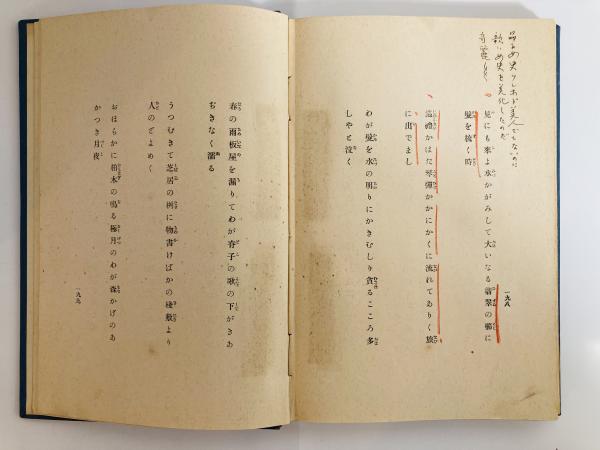 見にも來よ水かがみして大いなる翡翠の櫛に
髮を梳く時
巡禮かはた琴彈かかにかくに流れてありく旅
に出でまし
わが髮を水の明りにかきむしり貪るこころ多
しやと泣く
一九八
春の雨板屋を漏りてわが春子の歌の下がきあ
ぢきなく濡る
うつむきて芝居の桝に物書けばかの棧敷より
人のどよめく
おほらかに柏木の鳴る極月のわが森かげのあ
かつき月夜
一九九